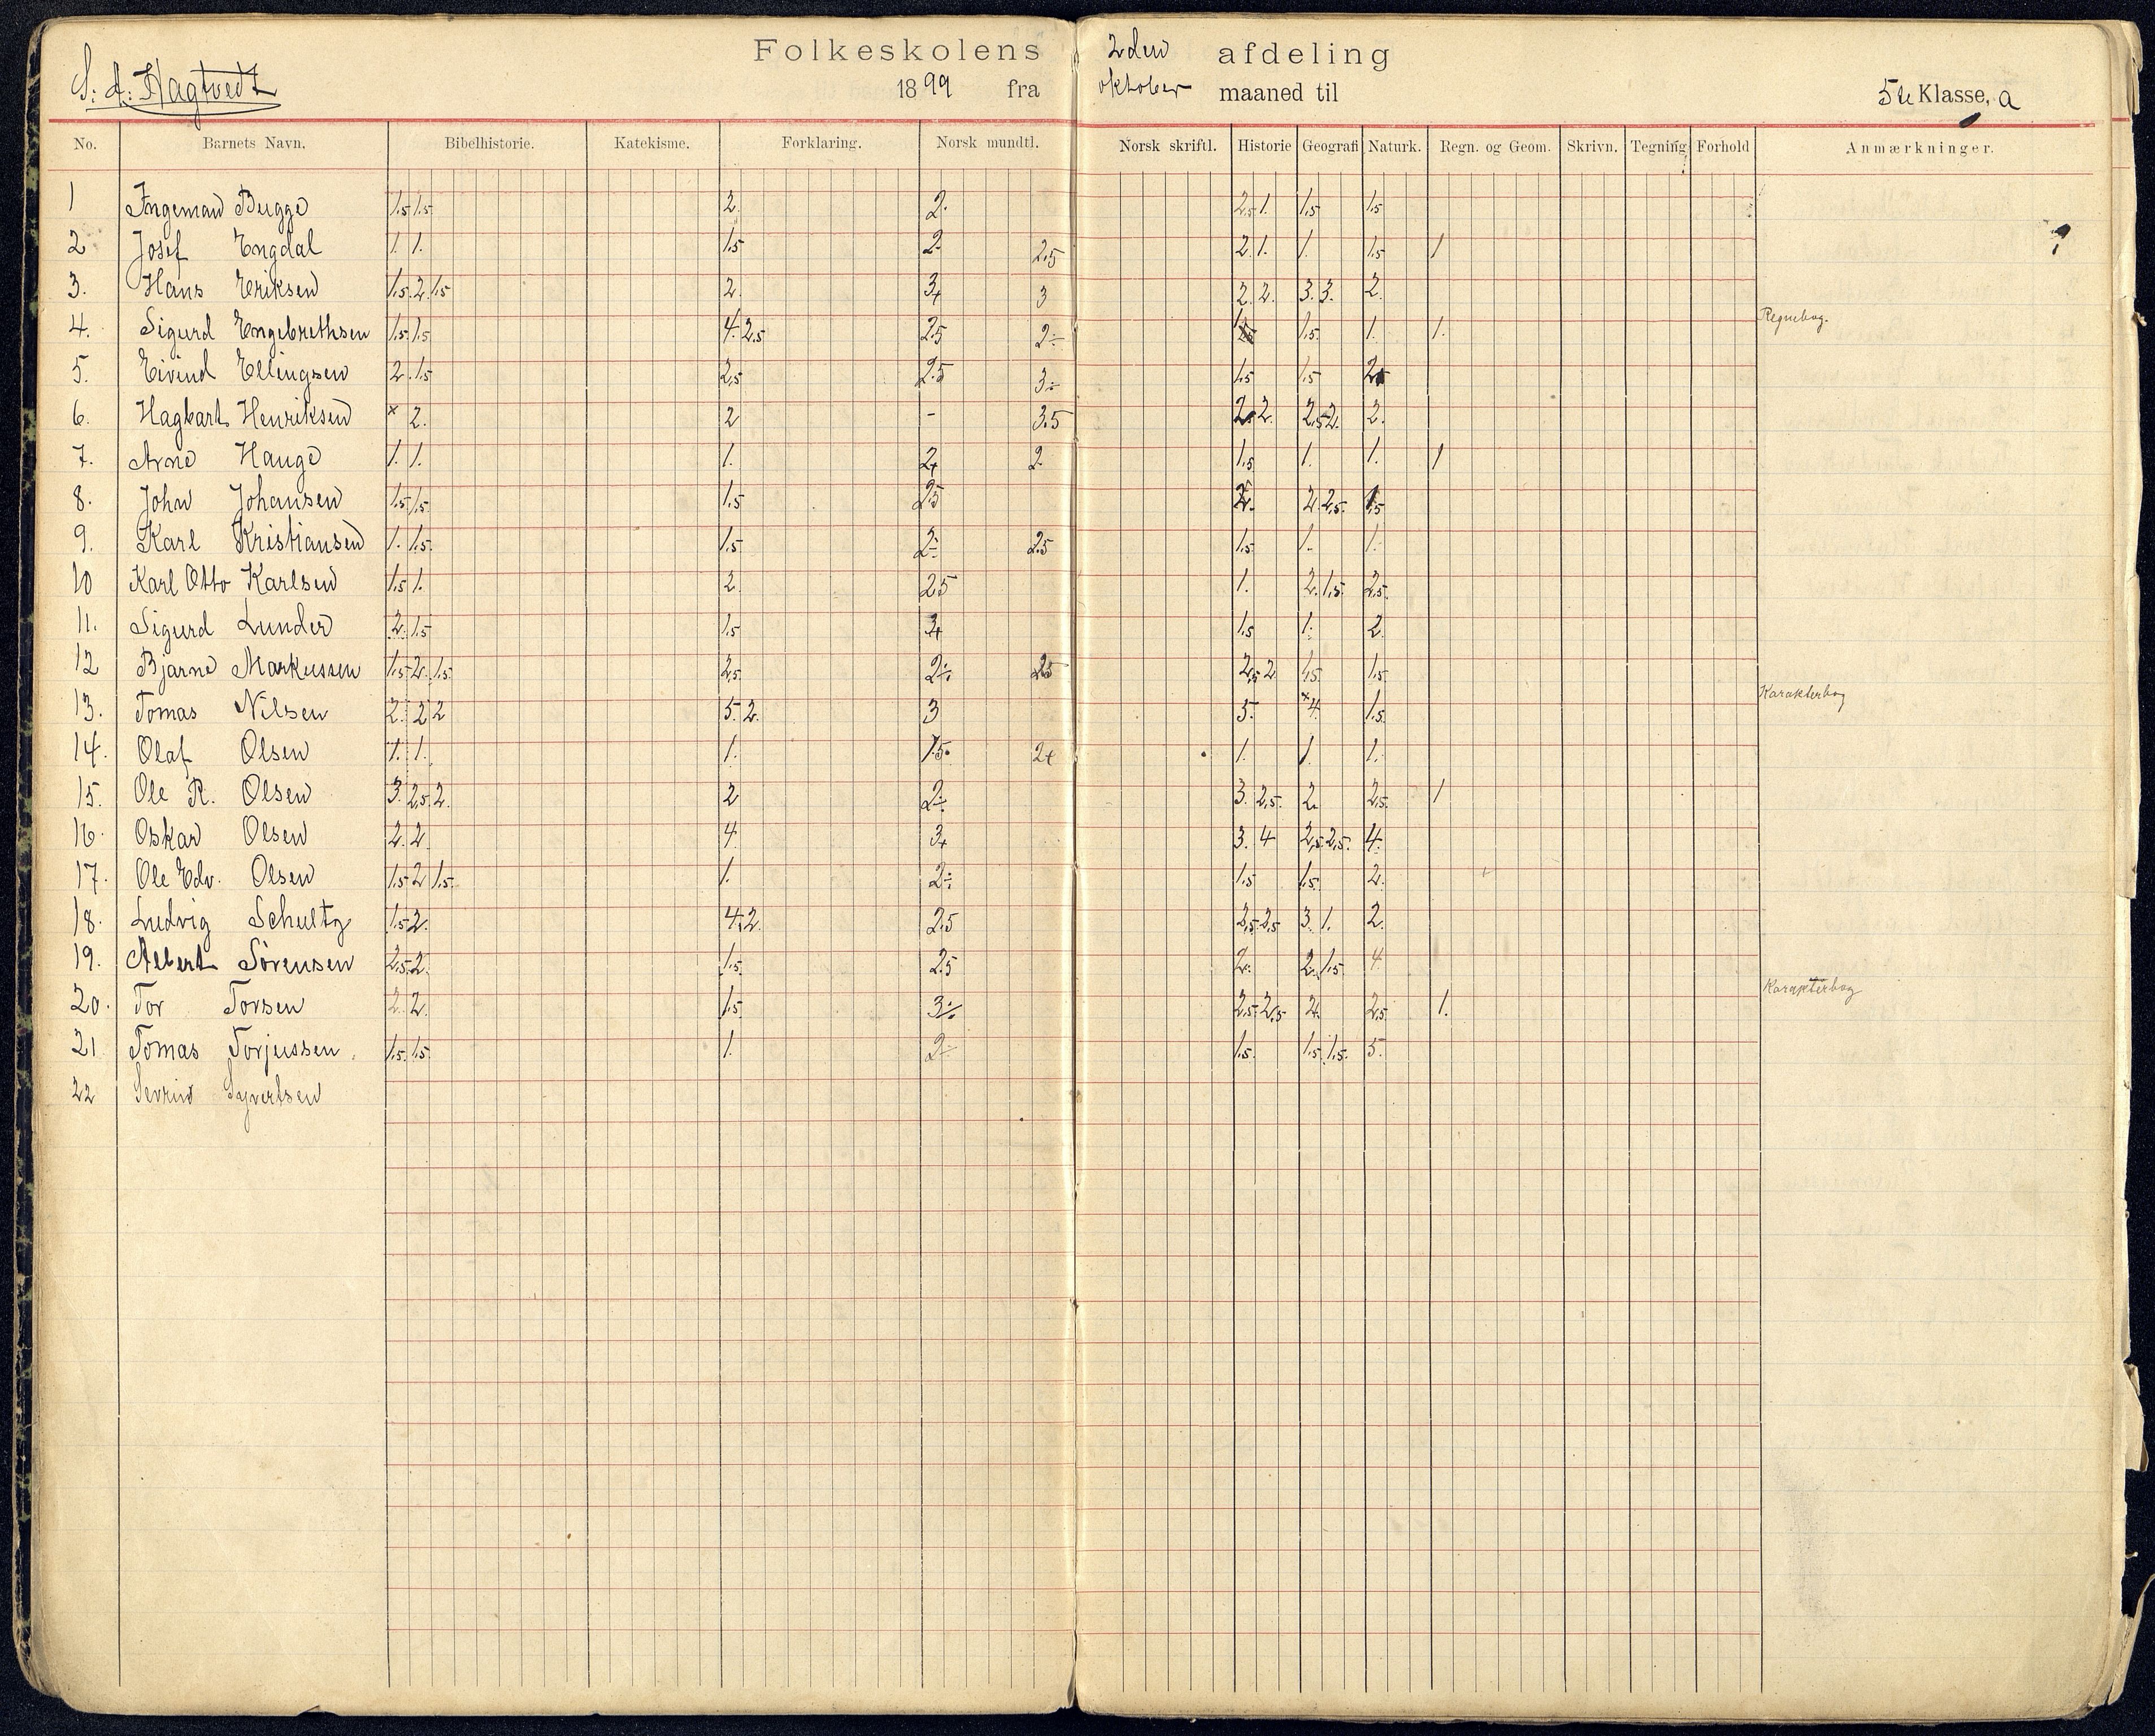 Folkeskolens 2den afdeling
S. A. Hagtvedt 1899 fra oktober maaned til 5te Klasse, a
No. Barnets Navn. Bibelhistorie. Katekisme. Forklaring. Norsk mundtl. Norsk skriftl. Historie Geografi Naturk. Regn. og Geom. Skrivn. Tegning Forhold Anmærkninger.
1 Ingeman Bugge 1.5 1.5 2. 2. 2.5 1. 1.5 1.5
2 Josef Engdal 1. 1. 1.5 2. 2.5 2. 1. 1. 1.5 1
3. Hans Eriksen 1.5. 2. 1.5 2. 3+ 3 2. 2. 3. 3. 2.
4. Sigurd Engebrethsen 1.5. 1.5 4. 2.5 2.5 2÷ 1.5. 1. 1. Regnebog.
5. Eivind Ellingsen 2. 1.5 2.5 2.5 3÷ 1.5 1.5
6. Hagbart Henriksen × 2. 2 - 3.5 2. 2.5 2. 2.
7. Arne Hauge 1. 1. 1. 2+ 2. 1.5 1. 1. 1
8. John Johansen 1.5 1.5 1.5 2.5 2. 2.5. 1.5
9. Karl Kristiansen 1. 1.5. 1.5 2÷ 2.5 1.5. 1. 1.
10 Karl Otto Karlsen 1.5 1. 2. 2.5 1. 2. 1.5. 2.5.
11. Sigurd Lunder 2. 1.5 1.5 3+ 1.5 1. 2.
12 Bjarne Markussen 1.5 2. 1.5. 2.5 2÷ 2.5 2.5 2 1.5 1.5
13. Tomas Nilsen 2. 2 2 5. 2. 3 5. ×4. 1.5. Karakterbog
14. Olaf Olsen 1. 1. 1. 1.5. 2+ 1. 1. 1.
15. Ole R. Olsen 3. 2.5. 2. 2 2÷ 3. 2.5. 2. 2.5. 1
16. Oskar Olsen 2. 2. 4. 3+ 3. 4 2.5. 2.5. 4.
17. Ole Edv. Olsen 1.5 2 1.5. 1. 2÷ 1.5 1.5. 2.
18. Ludvig Schultz 1.5 2. 4. 2. 2.5 2.5 2.5 3. 1. 2.
19. Albert Sörensen 2.5. 2. 1.5. 2.5 2. 2. 1.5. 4.
20. Tor Torsen 2. 2. 1.5. 3÷ 2.5. 2.5 2. 2.5 1. Karakterbog
21 Tomas Torjussen. 1.5. 1.5. 1. 2÷ 1.5. 1.5. 1.5. 5.
22 Sevrin Syvertsen